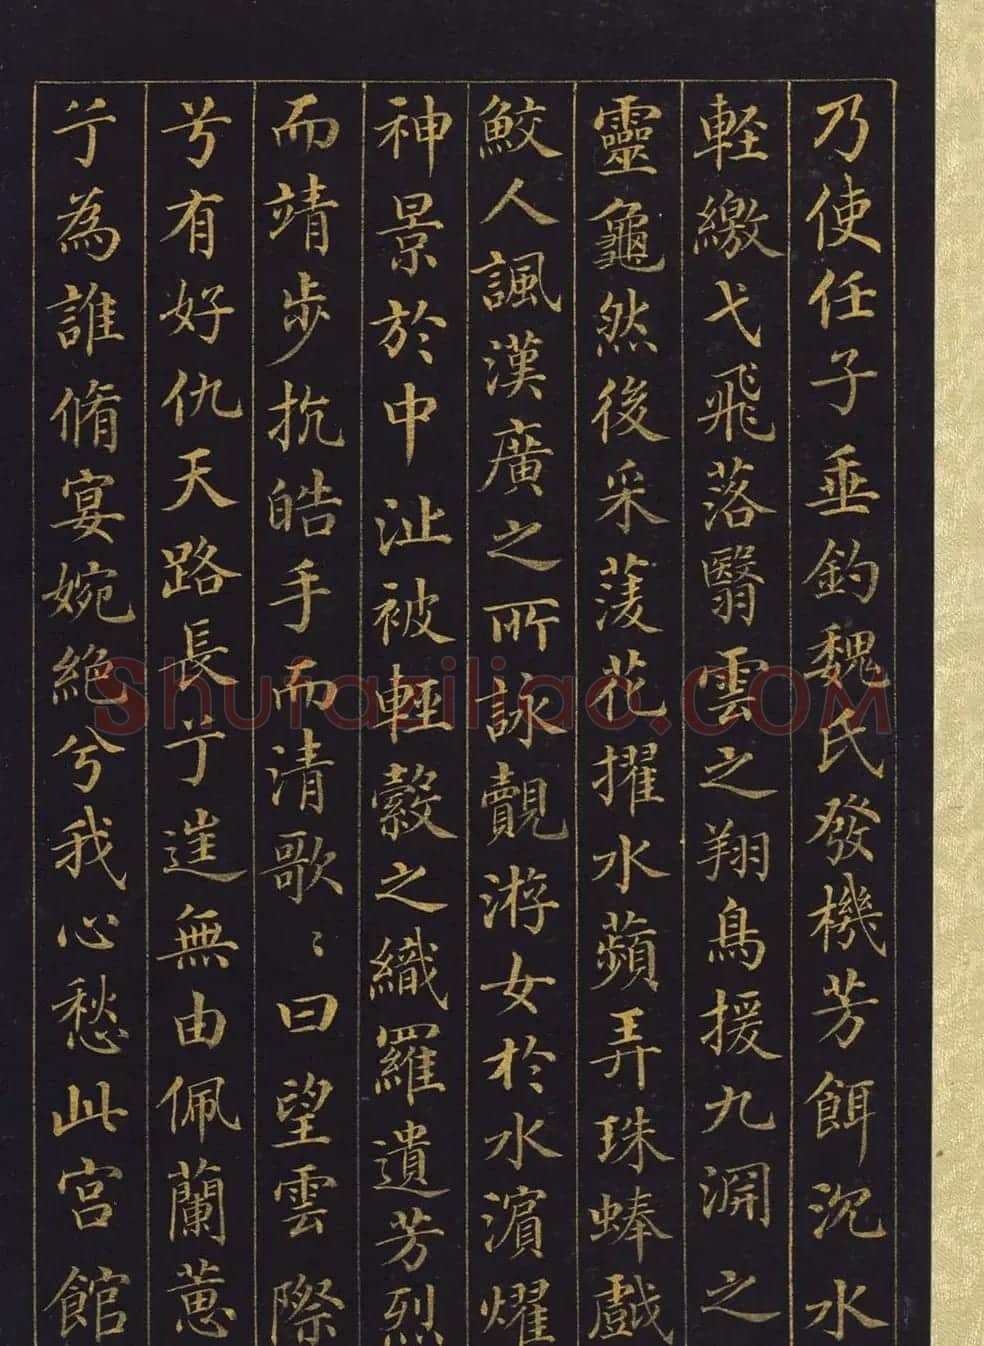 乃使任子垂釣魏氏發機芳餌沉水
輕繳弋飛落翳雲之翔鳥援九淵之
靈龜然後采菱花擢水蘋弄珠蜯戲
鮫人諷漢廣之所詠覿游女於水濱燿
神景於中沚被輕縠之纖羅遺芳烈
而靖步抗皓手而清歌〻曰望雲際
兮有好仇天路長兮往無由佩蘭蕙
兮為誰脩宴婉絕兮我心愁此宮館
Shufaziliao.COM